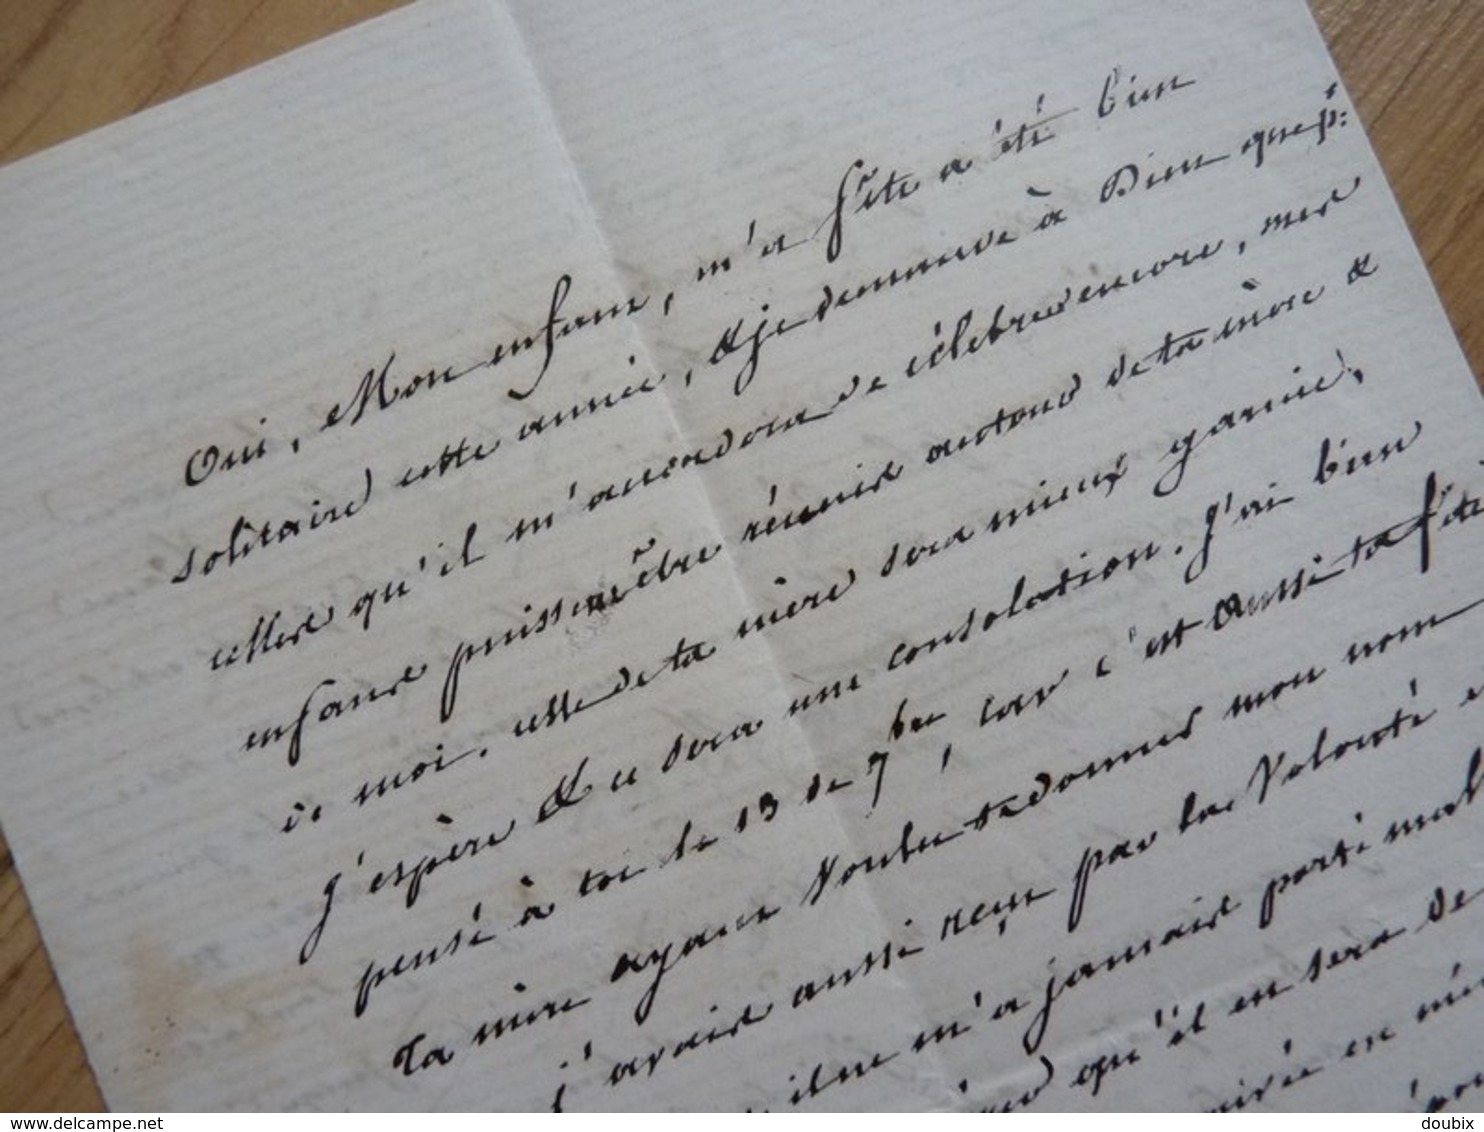 Oui, Mon enfant, m'a fête a été bien
solitaire cette année, & je demande à Dieu que p:
celles qu'il m'accordera de célébrer encore, mes
enfans puissent être réunis autour de ta mère &
de moi. celle de ta mère sera mieux garnie,
j'espère & ce sera une consolation. J'ai bien
pensé à toi le 13 de 7bre, car c'est aussi ta fête
ta mère ayant voulu te donner mon nom
j'avais aussi reçu par la Volonté
il ne m'a jamais porté mal
qu'il en sera de
en
delcampe.net
doubix